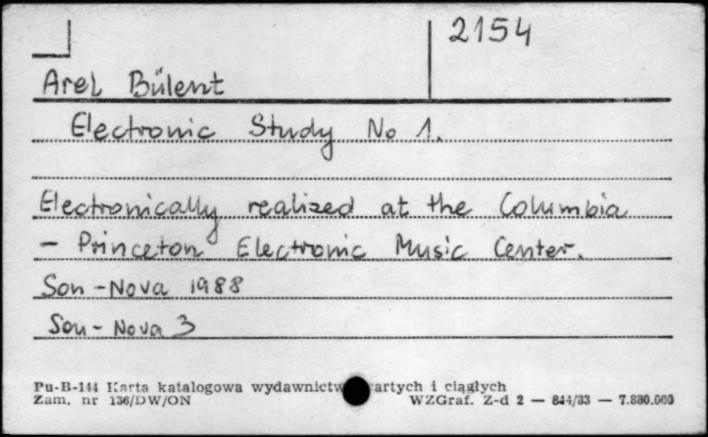 2154
Arel Bülent
Electronic Study No 1.
Electronically realized at the Columbia
- Princeton Electronic Music Center.
Son-Nova 1988
Son-Nova 3
Pu-B-144 Karta katalogowa wydawnictw artych i ciągłych
Zam. nr 136/DW/ON WZGraf. Z-d 2 — 844/83 — 7.880.000